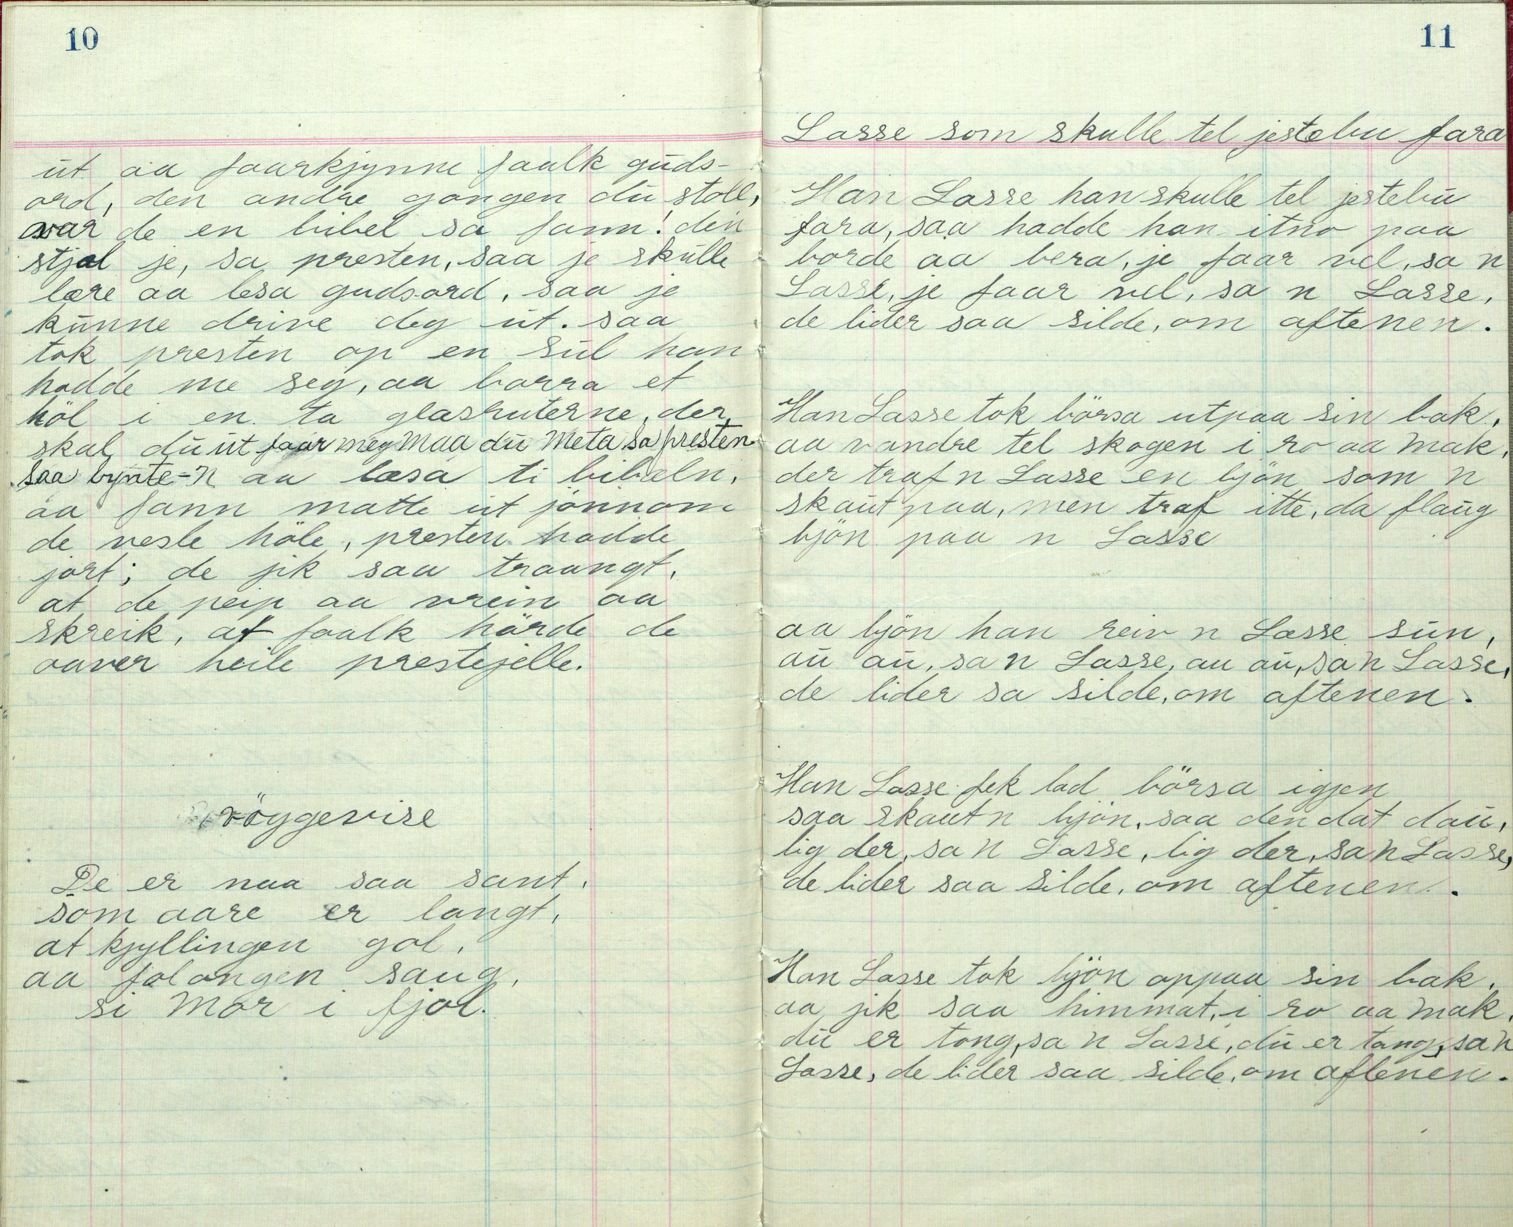 10
ut aa faarkjynne faalk guds-
ord, den andre gangen du stoll,
var de en bibel sa fann! den
stjal je, sa presten, saa je skulle
lære aa lesa gudsord, saa je
kunne drive deg ut. saa
tok presten op en sul han
hadde me seg, aa barra et
höl i en ta glasruterne, der
skal du ut faar meg maa du meta sa presten
saa bynte-n aa læsa ti bibeln,
aa fann matte ut jönnom
de vesle höle, presten hadde
jort; de jik saa traangt,
at de peip aa vrein aa
skreik, at faalk hörde de
aaver heile prestejelle.
vöggevise
De er naa saa sant,
som aare er langt,
at kjyllingen gol,
aa folongen saug,
si Mor i fjol.
11
Lasse som skulle tel jestebu fara
Han Lasse han skulle tel jestebu
fara, saa hadde han itno paa
borde aa bera, je faar vel, sa n
Lasse, je faar vel, sa n Lasse,
de lider saa silde, om aftenen.
Han Lasse tok börsa utpaa sin bak,
aa vandre tel skogen i ro aa mak,
der traf n Lasse en bjön som n
skaut paa, men traf itte, da flaug
bjön paa n Lasse
aa bjön han reiv n Lasse sun,
au au, sa n Lasse, au au, sa n Lasse,
de lider sa silde, om aftenen.
Han Lasse fek lad börsa igjen
saa skaut n bjön, saa den dat dau,
lig der, sa n Lasse, lig der, sa n Lasse,
de lider saa silde, om aftenen.
Han Lasse tok bjön oppaa sin bak,
aa jik saa himmat, i ro aa mak,
du er tong, sa n Lasse, du er tang, sa n
Lasse, de lider saa silde, om aftenen.